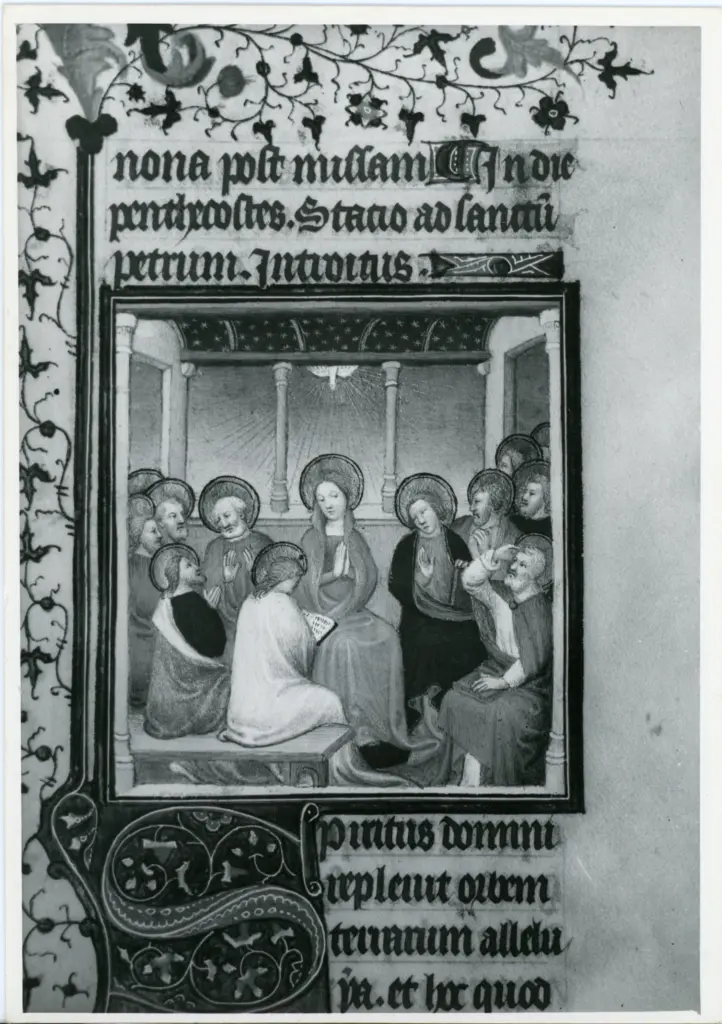 nona post missam In die
penthecostes. Statio ad sanctū
petrum. Introitus.
Spiritus domini
repleuit orbem
terrarum allelu
ya. et hoc quod